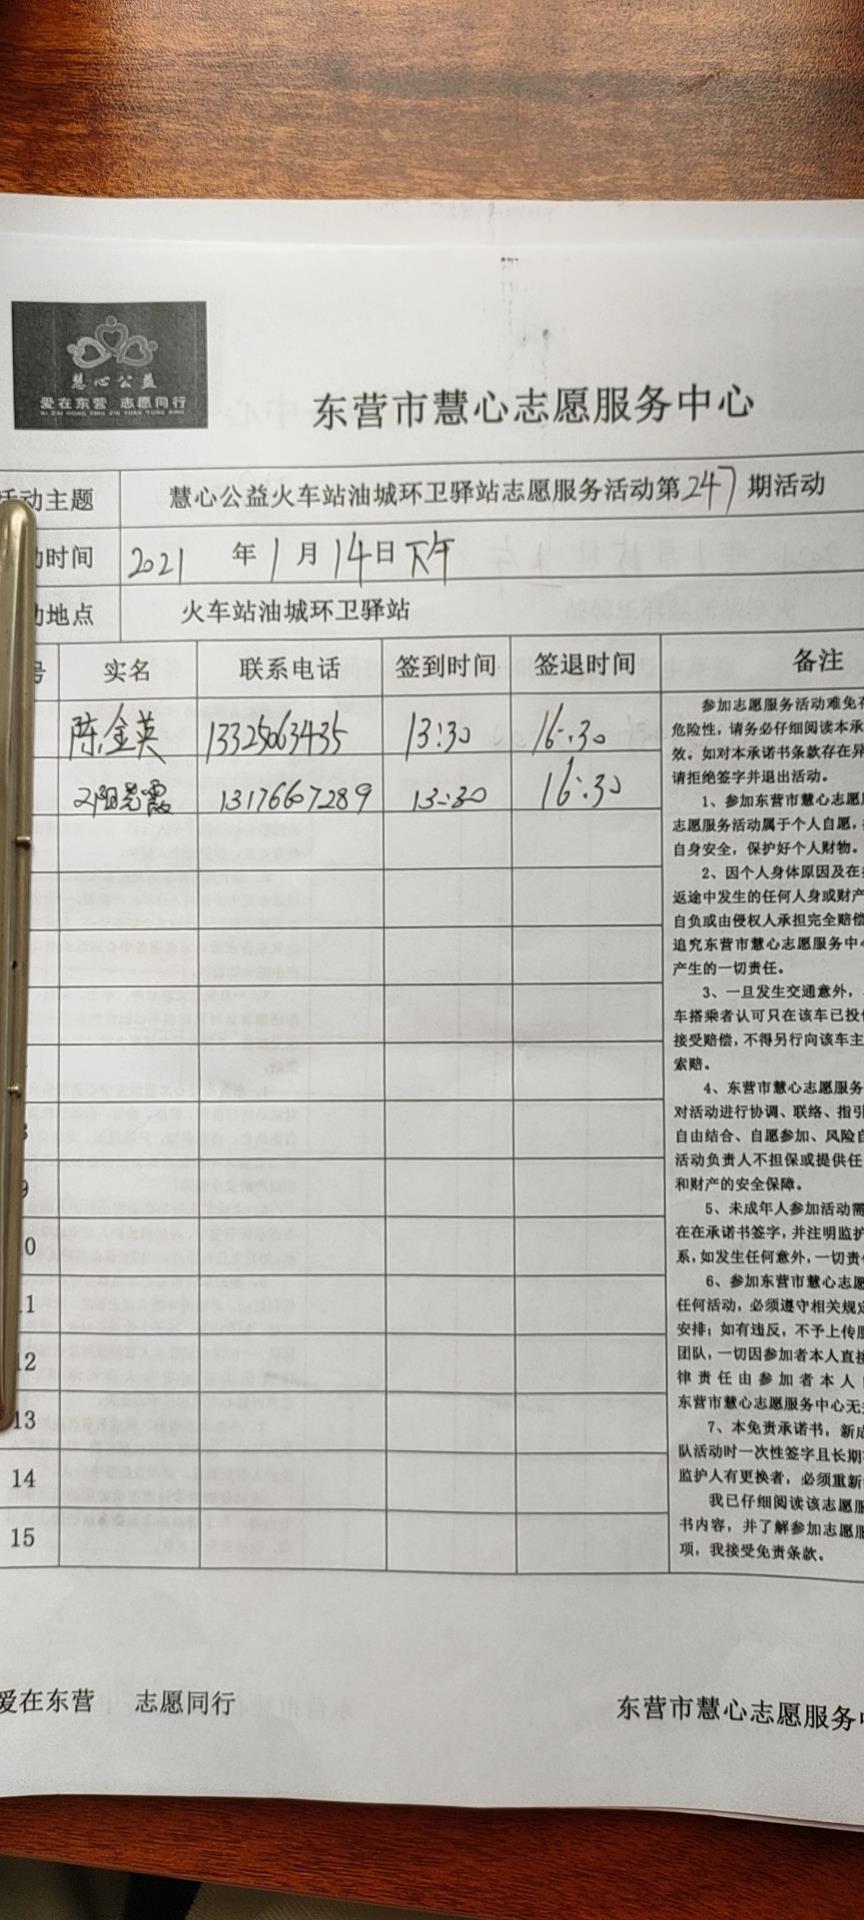 慧心公益
爱在东营 志愿同行
东营市慧心志愿服务中心
活动主题 慧心公益火车站油城环卫驿站志愿服务活动第247期活动
动时间 2021年1月14日下午
动地点 火车站油城环卫驿站
号 实名 联系电话 签到时间 签退时间 备注
陈金英 13325063435 13:30 16:30
13176607289 13:30 16:30
9
10
11
12
13
14
15
参加志愿服务活动难免存
危险性，请务必仔细阅读本承
效。如对本承诺书条款存在异
请拒绝签字并退出活动。
1、参加东营市慧心志愿
志愿服务活动属于个人自愿，
自身安全，保护好个人财物。
2、因个人身体原因及在
返途中发生的任何人身或财产
自负或由侵权人承担完全赔偿
追究东营市慧心志愿服务中心
产生的一切责任。
3、一旦发生交通意外，
车搭乘者认可只在该车已投
接受赔偿，不得另行向该车主
索赔。
4、东营市慧心志愿服务
对活动进行协调、联络、指引
自由结合、自愿参加、风险自
活动负责人不担保或提供任
和财产的安全保障。
5、未成年人参加活动需
在在承诺书签字，并注明监护
系，如发生任何意外，一切责
6、参加东营市慧心志愿
任何活动，必须遵守相关规定
安排；如有违反，不予上传
团队，一切因参加者本人直接
律责任由参加者本人
东营市慧心志愿服务中心无
7、本免责承诺书，新成
队活动时一次性签字且长期
监护人有更换者，必须重新
我已仔细阅读该志愿服
书内容，并了解参加志愿服
项，我接受免责条款。
爱在东营 志愿同行
东营市慧心志愿服务中